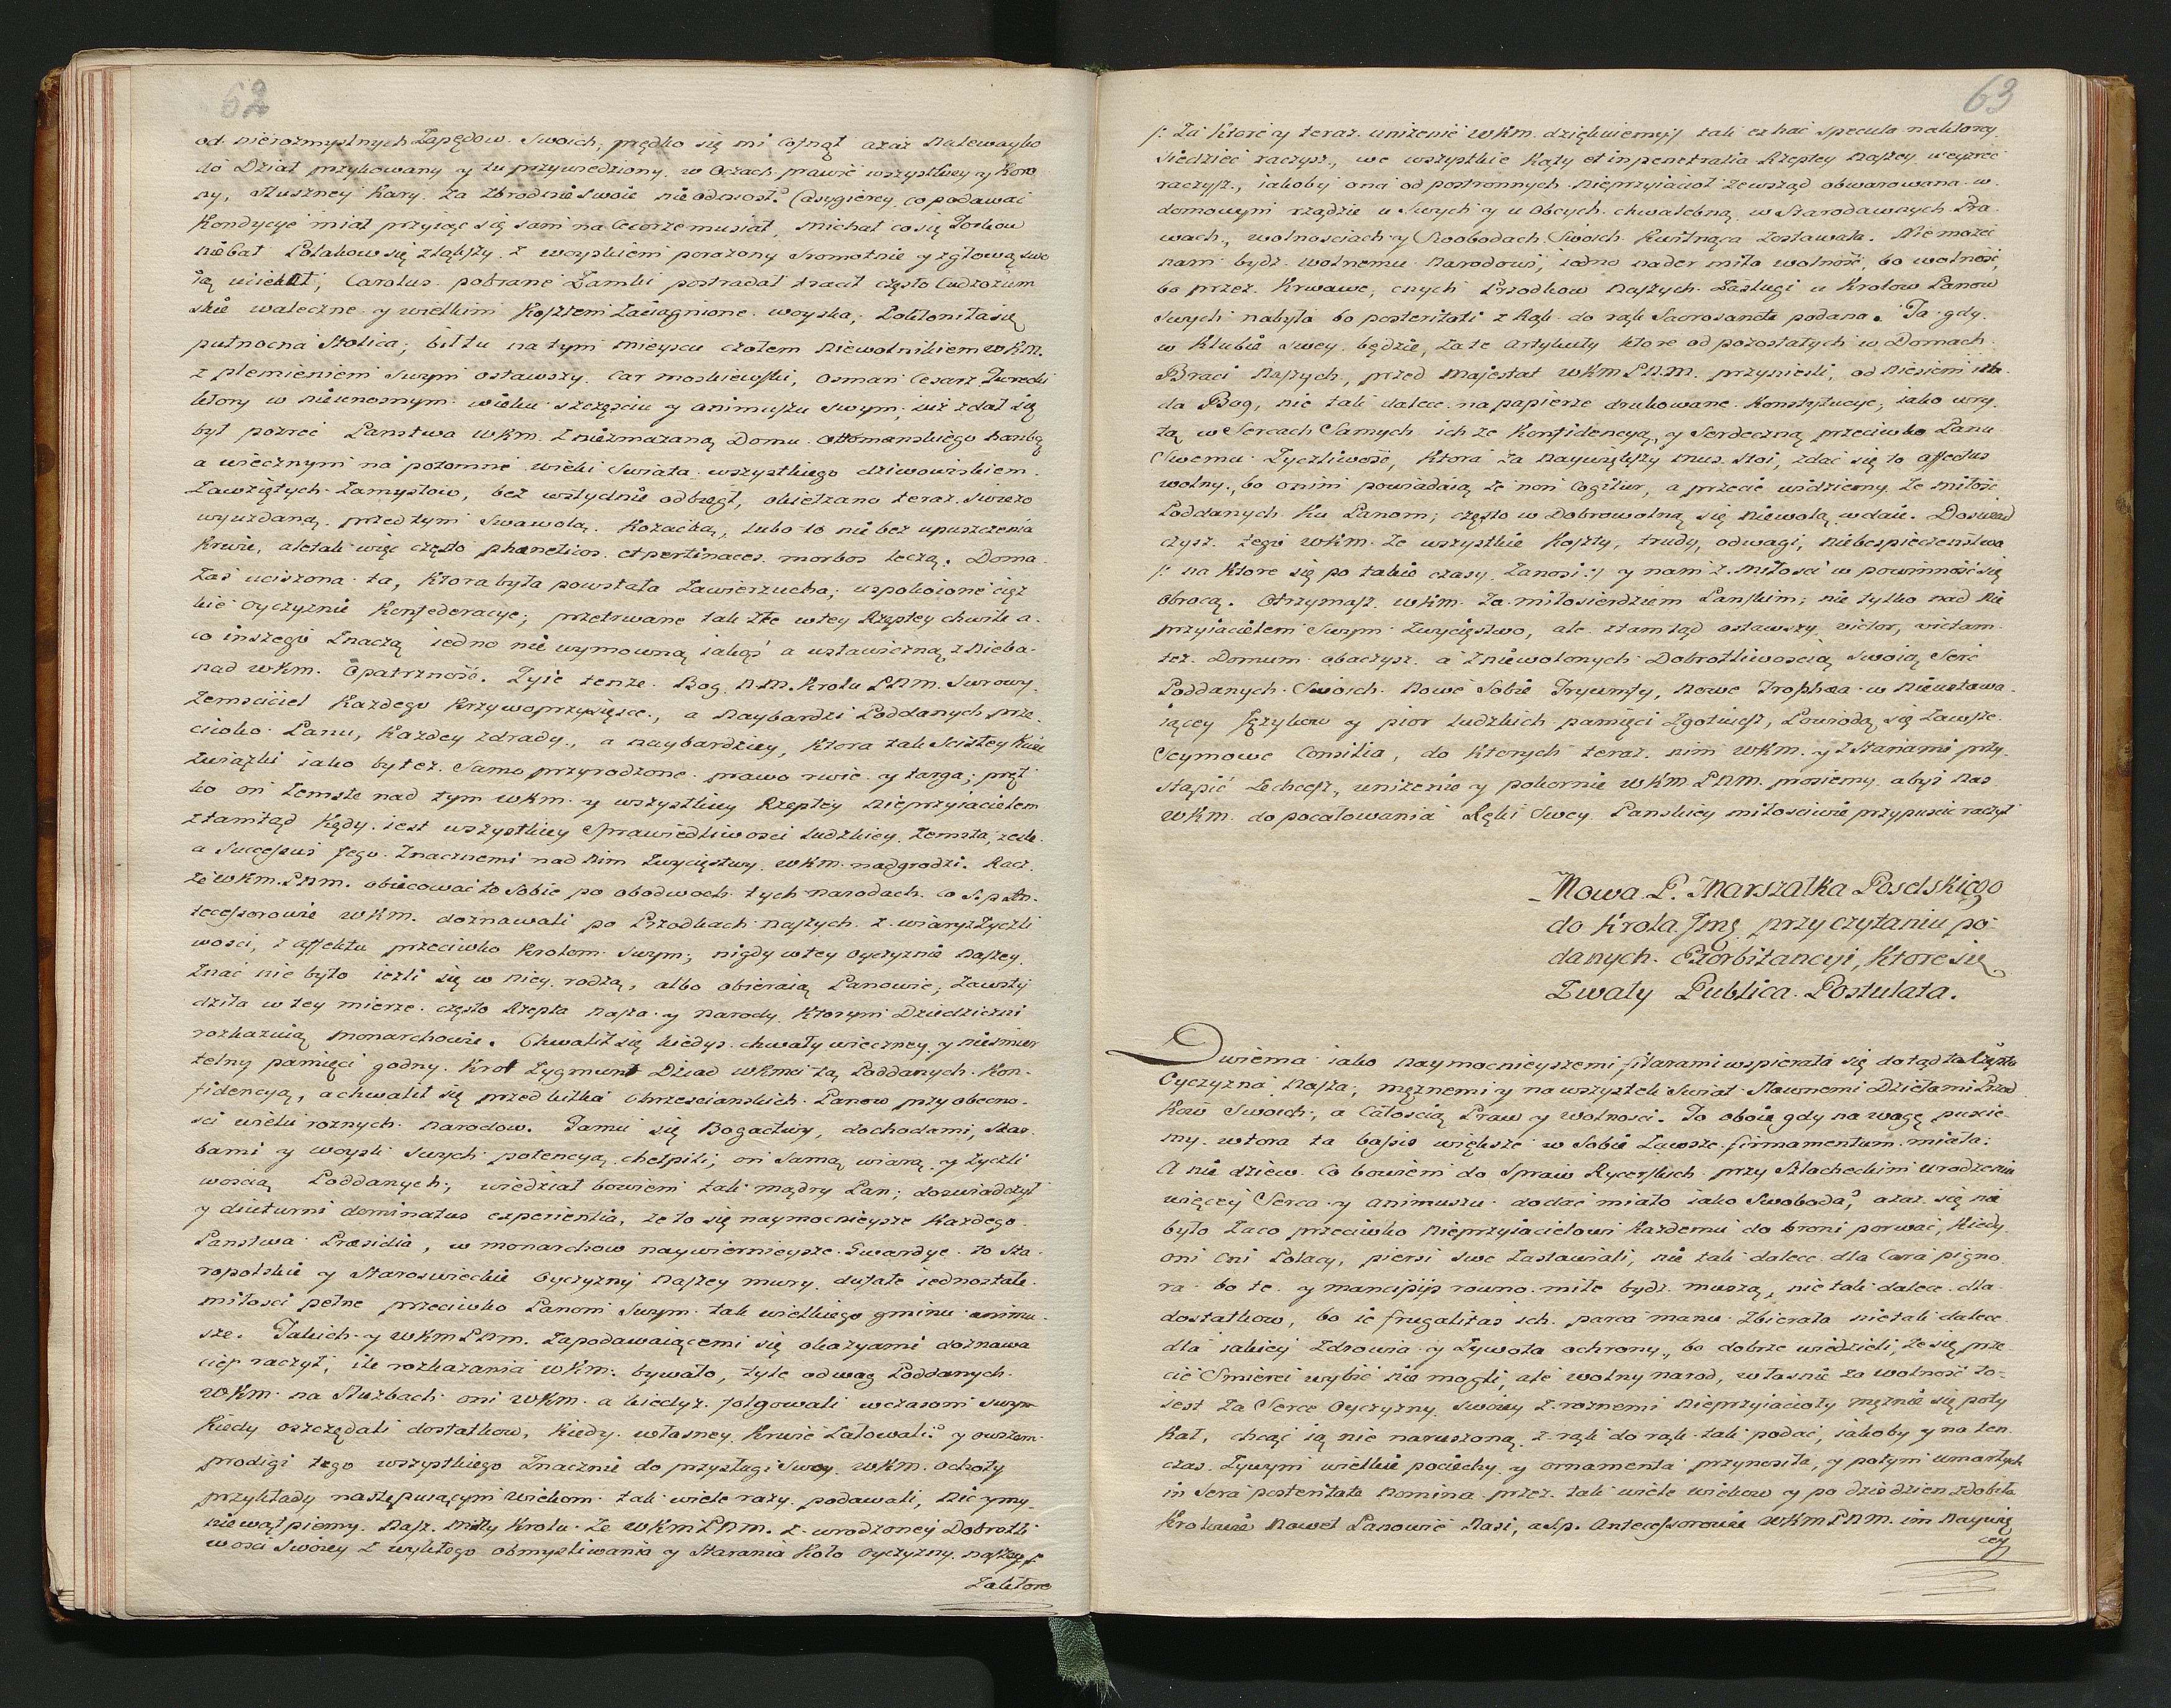 62
od nierozmyslnych Zapędow Swoich, prędko się mi cofnął azaz Nalewayko
do Dział przykowany y tu przywiedziony w Oczach prawie wszystkiey y Koro
ny, słuszney Kary za Zbrodnie Swoie nie odniosł? Casygierey co podawać
Kondycye miał przyiąc się sam na Cecorze musiał, Michał co się
niebał Polakow się zląkszy z woyskiem porażony Sromotnie y z głową swo
ią uciekał, Carolus pobrane Zamki postradał tracił często Cudzoziem
skie waleczne y wielkim Kosztem Zaciągnione woyska, Pokłoniła się
pułnocna Stolica, bił tu na tym mieyscu czołem Niewolnikiem WKM.
z plemieniem Swym ostawszy Car moskiewski, Osman Cesarz Turecki
ktory w nieunosnym wieku szczęsciu y animuszu swym, iuż zdał się
być pożreć Panstwa WKM. z niezmazaną Domu Ottomanskiego hanbą
a wiecznym na potomne wieki Swiata wszystkiego dziwowiskiem
Zawziętych Zamysłow, bez wstydnie odbiegł, okiełzano teraz swieżo
wyuzdaną przed tym Swawolą Kozacką, lubo to nie bez upuszczenia
Krwie, ale tak więc często phraeneticos et pertinaces morbos leczą. Doma
Zaś uciszona ta, Ktora była powstała Zawierzucha, uspokoione cięż
kie oyczyznie Konfederacye, przetrwane tak Złe w tey Rzptey chwile a
co inszego Znaczą iedno nie wymowną iakąś a ustawiczną z Nieba
nad WKM. Opatrzność. Zyie tenze Bog N.M. Krolu P.N.M. Surowy
Zemsciciel Kazdego Krzywoprzysięsce, a Naybardzi Poddanych prze
ciwko Panu, Kazdey zdrady, a naybardziey, Ktora tak Scisłey Krwie
Związki iako by też Samo przyrodzone prawo rwie y targa, pręt
ko on Zemste nad tym WKM. y wszystkiey Rzptey Nieprzyiacielem
z tamtąd Kędy iest wszystkiey Sprawiedliwosci ludzkiey Zemsta, zesle
a Successus Jego Znacznemi nad Nim Zwycięstwy WKM. nadgrodzi. Racz
że WKM. P.N.M. obiecować to Sobie po obodwoch tych narodach co S. p. An
tecessorowie WKM. doznawali po Przodkach naszych z wiary z Zyczli
wosci, z affektu przeciwko Krolom Swym, nigdy w tey oyczyznie Naszey
Znać nie było iezli się w niey rodzą, albo obieraią Panowie, Zawsty
dziła w tey mierze często Rzepta Nasza y Narody Ktorym Dziedziczni
rozkazuią monarchowie. Chwalił się kiedys chwały wieczney y niesmier
telny pamięci godny Krol Zygmunt Dziad WKMci tą Poddanych Kon-
fidencyą, a chwalił się przed kilka Chrzescianskich Panow przy obecno-
sci wielu roznych Narodow. Tamci się Bogactwy, dochodami, Skar
bami y woysk Swych potencyą chełpili, on Samą wiarą y Zyczli
woscią Poddanych, wiedział bowiem tak mądry Pan, doswiadczył
y diuturni dominatus experientia, że to się naymocnieysze Każdego
Panstwa Præsidia, w monarchow naywiernieysze Gwardye to Sta-
ropolskie y Staroswieckie Oyczyzny Naszey mury dufałe iednostale
miłosci pełne przeciwko Panom Swym tak wielkiego gminu animu-
sze. Takich y WKM P.N.M. Zapodawaiącemi się okazyami doznawa
cieś raczył, ile rozkazania WKM. bywało, tyle odwag Poddanych
WKM. na Służbach oni WKM. a kiedyz folgowali wczasom swym
Kiedy oszczędali dostatkow, Kiedy własney Krwie Załowali? y owszem
prodigi tego wszystkiego Znacznie do przysługi Swey WKM. ochoty
przykłady następuiącym wiekom tak wiele razy podawali, Nic y my
niewątpiemy Nasz Miły Krolu Ze WKM P.N.M. z wrodzoney Dobrotli
wosci Swoiey z wykłego obmysliwania y Starania Koło oyczyzny naszey /:
Zaktore
63
/: Za Ktore y teraz uniżenie WKM. dziękuiemy :/ tak ex hac specula naktorey
Siedzieć raczysz, we wszystkie Kąty et in penetralia Rzeptey Naszey weyzrec
raczysz, iakoby ona od postronnych Nieprzyiacioł zewsząd obwarowana w
domowym rządzie u Swych y u Obcych chwalebną w Starodawnych Pra
wach, wolnosciach y Swobodach Swoich Kwitnąca Zostawała. Niemoże
nam bydz wolnemu Narodowi, iedno nader miła wolność, bo wolność
bo przez Krwawe, cnych Przodkow Naszych Zasługi u Krolow Panow
Swych nabyta bo posteritati z Rąk do rąk Sacrosancte podana. Ta gdy
w Klubie Swey będzie, Zate Artykuły ktore od pozostałych w Domach
Braci Naszych, przed Majestat WKM P.N.M. przyniesli, odniesiem
da Bog, nie tak dalece na papierze drukowane Konstytucye, iako wry
tą w Sercach Samych ich ze Konfidencyą, y Serdeczną przeciwko Panu
Swemu Zyczliwość, Ktora Za Naywiększy mus stoi, zdać się to affectus
wolny, bo onim powiadaią że non Cogitur, a przecie widziemy Ze miłość
Poddanych Ku Panom, często w Dobrowolną się Niewolą wdaie. Doswiad
czysz tego WKM. Ze wszystkie Koszty, trudy, odwagi, Niebespieczeństwa
/: na Ktore się po takie czasy Zanosi :/ y nam z Miłosci w powinność się
obrocą. Otrzymasz WKM. Za miłosierdziem Panskim, nie tylko nad Nie
przyiacielem Swym Zwycięstwo, ale ztamtąd ostawszy victor, victam
też Domum obaczysz a Zniewolonych Dobrotliwoscią Swoią Serc
Poddanych Swoich Nowe Sobie Tryumfy, Nowe Trophæa w Nieustawa-
iącey Językow y pior ludzkich pamięci Zgotuiesz, Powiodą się Zawsze
Seymowe Consilia, do Ktorych teraz nim WKM. y z Stanami przy-
stąpić Zechcesz, uniżenie y pokornie WKM P.N.M. prosiemy abyś Nas
WKM. do pocałowania Ręki Swey Panskiey miłosciwie przypuscic raczył
Mowa P. Marszałka Poselskiego
do Krola Jmę przy czytaniu po-
danych Exorbitancyi, Ktore się
Zwały Publica Postulata.
Dwiema iako Naymocnieyszemi filarami wspierała się dotąd ta
Oyczyzna Nasza, męznemi y na wszystek Swiat Sławnemi Dziełami Przod
Kow Swoich, a Całoscią Praw y Wolnosci. To oboie gdy na wagę puscie-
my wtora ta basis większe w Sobie Zawsze firmamentum miała.
A nie dziew. Co bowiem do Spraw Rycerskich przy Slacheckim urodzeniu
więcey Serca y Animuszu dodać miało iako Swoboda, azaz się nie
było Zaco przeciwko Nieprzyiacielowi Każdemu do broni porwać, Kiedy
oni Cni Polacy, piersi Swe Zastawiali, nie tak dalece dla Cara pigno
ra bo te y mancipijs rowno miłe bydz muszą, nie tak dalece dla
dostatkow, bo ie frugalitas ich parca manu Zbierała nie tak dalece
dla iakiey Zdrowia y Zywota ochrony, bo dobrze wiedzieli, że się prze
cie Smierci wybić nie mogli, ale wolny narod, własnie za wolność to-
iest Za Serce Oyczyzny Swoiey z roznemi Nieprzyiacioły mężnie się poty
Kał, chcąc ią nie naruszoną z rąk do rąk tak podać, iakoby y na ten
czas Zywym wielkie pociechy y ornamenta przynosiła, y potym umarłych
in Sera posteritate Nomina przez tak wiele wiekow y po dzis dzien zdobiła
Krolowie Nawet Panowie Nasi, a S.p. Antecessorowie WKM P.N.M. im Naywię
cey